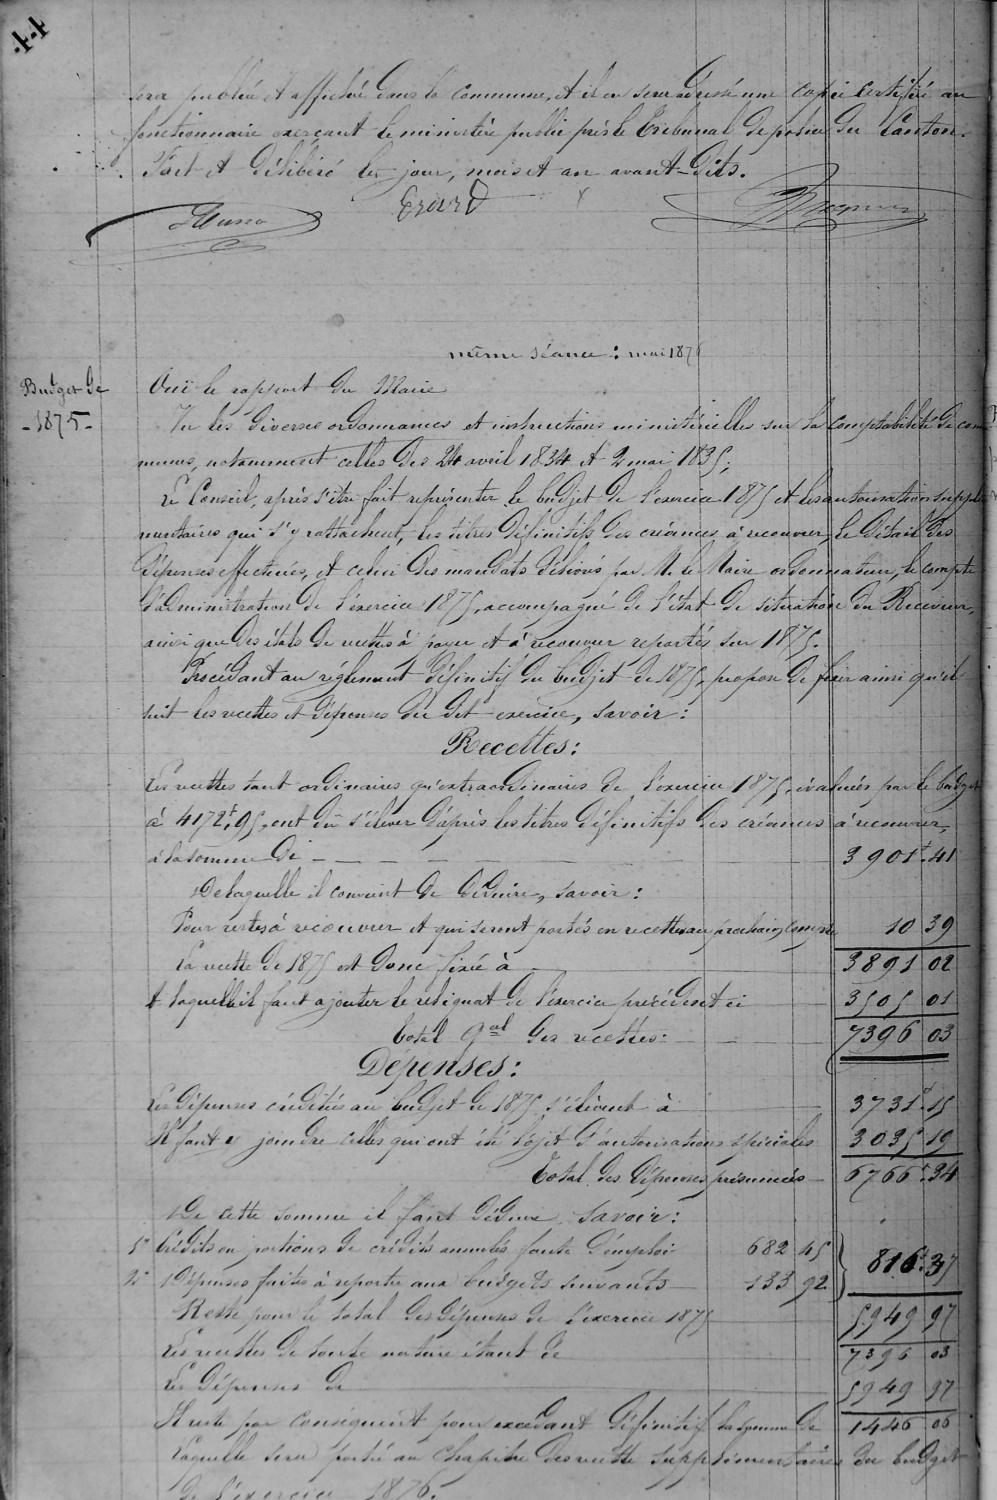 44
sera publié et affiché dans la commune, et il en sera adressé une copie certifiée au
fonctionnaire exerçant le ministère public près le Tribunal de police du Canton.
Fait et Délibéré les jour, mois et an avant-dits.
Erard
même séance : mai 1876
Budget de
- 1875 -
Ouï le rapport du Maire
Vu les diverses ordonnances et instructions ministérielles sur la comptabilité des com
munes, notamment celles des 24 avril 1834 et 2 mai 1835;
Le Conseil, après s'être fait représenter le budget de l'exercice 1875 et les autorisations supplé
mentaires qui s'y rattachent, les titres définitifs des créances à recouvrer, le détail des
dépenses effectuées, et celui des mandats délivrés par M. le Maire ordonnateur, le compte
d'administration de l'exercice 1875, accompagné de l'état de situation du Receveur,
ainsi que des états de restes à payer et à recouvrer reportés sur 1875.
Procédant au règlement définitif du budjet de 1875, propose de fixer ainsi qu'il
suit les recettes et dépenses du dit exercice, savoir :
Recettes :
Les recettes tant ordinaires qu'extraordinaires de l'exercice 1875, évaluées par le budget
à 4172f,95, ont dû s'élever d'après les titres définitifs des créances à recouvrer,
à la somme de 3901f.41
De laquelle il convient de déduire, savoir :
Pour restes à recouvrer et qui seront portés en recette au prochain compte 10 39
La recette de 1875 est donc fixée à 3891 02
à laquelle il faut ajouter le reliquat de l'exercice précédent ci 3505 01
Total gal des recettes : 7396 03
Dépenses :
Les dépenses créditées au budjet de 1875 s'élèvent à 3731f.15
Il faut y joindre celles qui ont été l'objet d'autorisations spéciales 3035 19
Total des dépenses présumées 6766f.34
De cette somme il faut déduire savoir :
1° Crédits ou portions de crédits annulés faute d'emploi 682 45
2° Dépenses faites à reporter aux budgets suivants 133 92 } 816f.37
Reste pour le total des dépenses de l'exercice 1875 5949 97
Les recettes de toute nature étant de 7396 03
Les dépenses de 5949 97
Il reste par conséquent pour excédant définitif la somme de 1446 06
Laquelle sera portée au chapitre des recettes supplémentaires du budget
de l'exercice 1876.